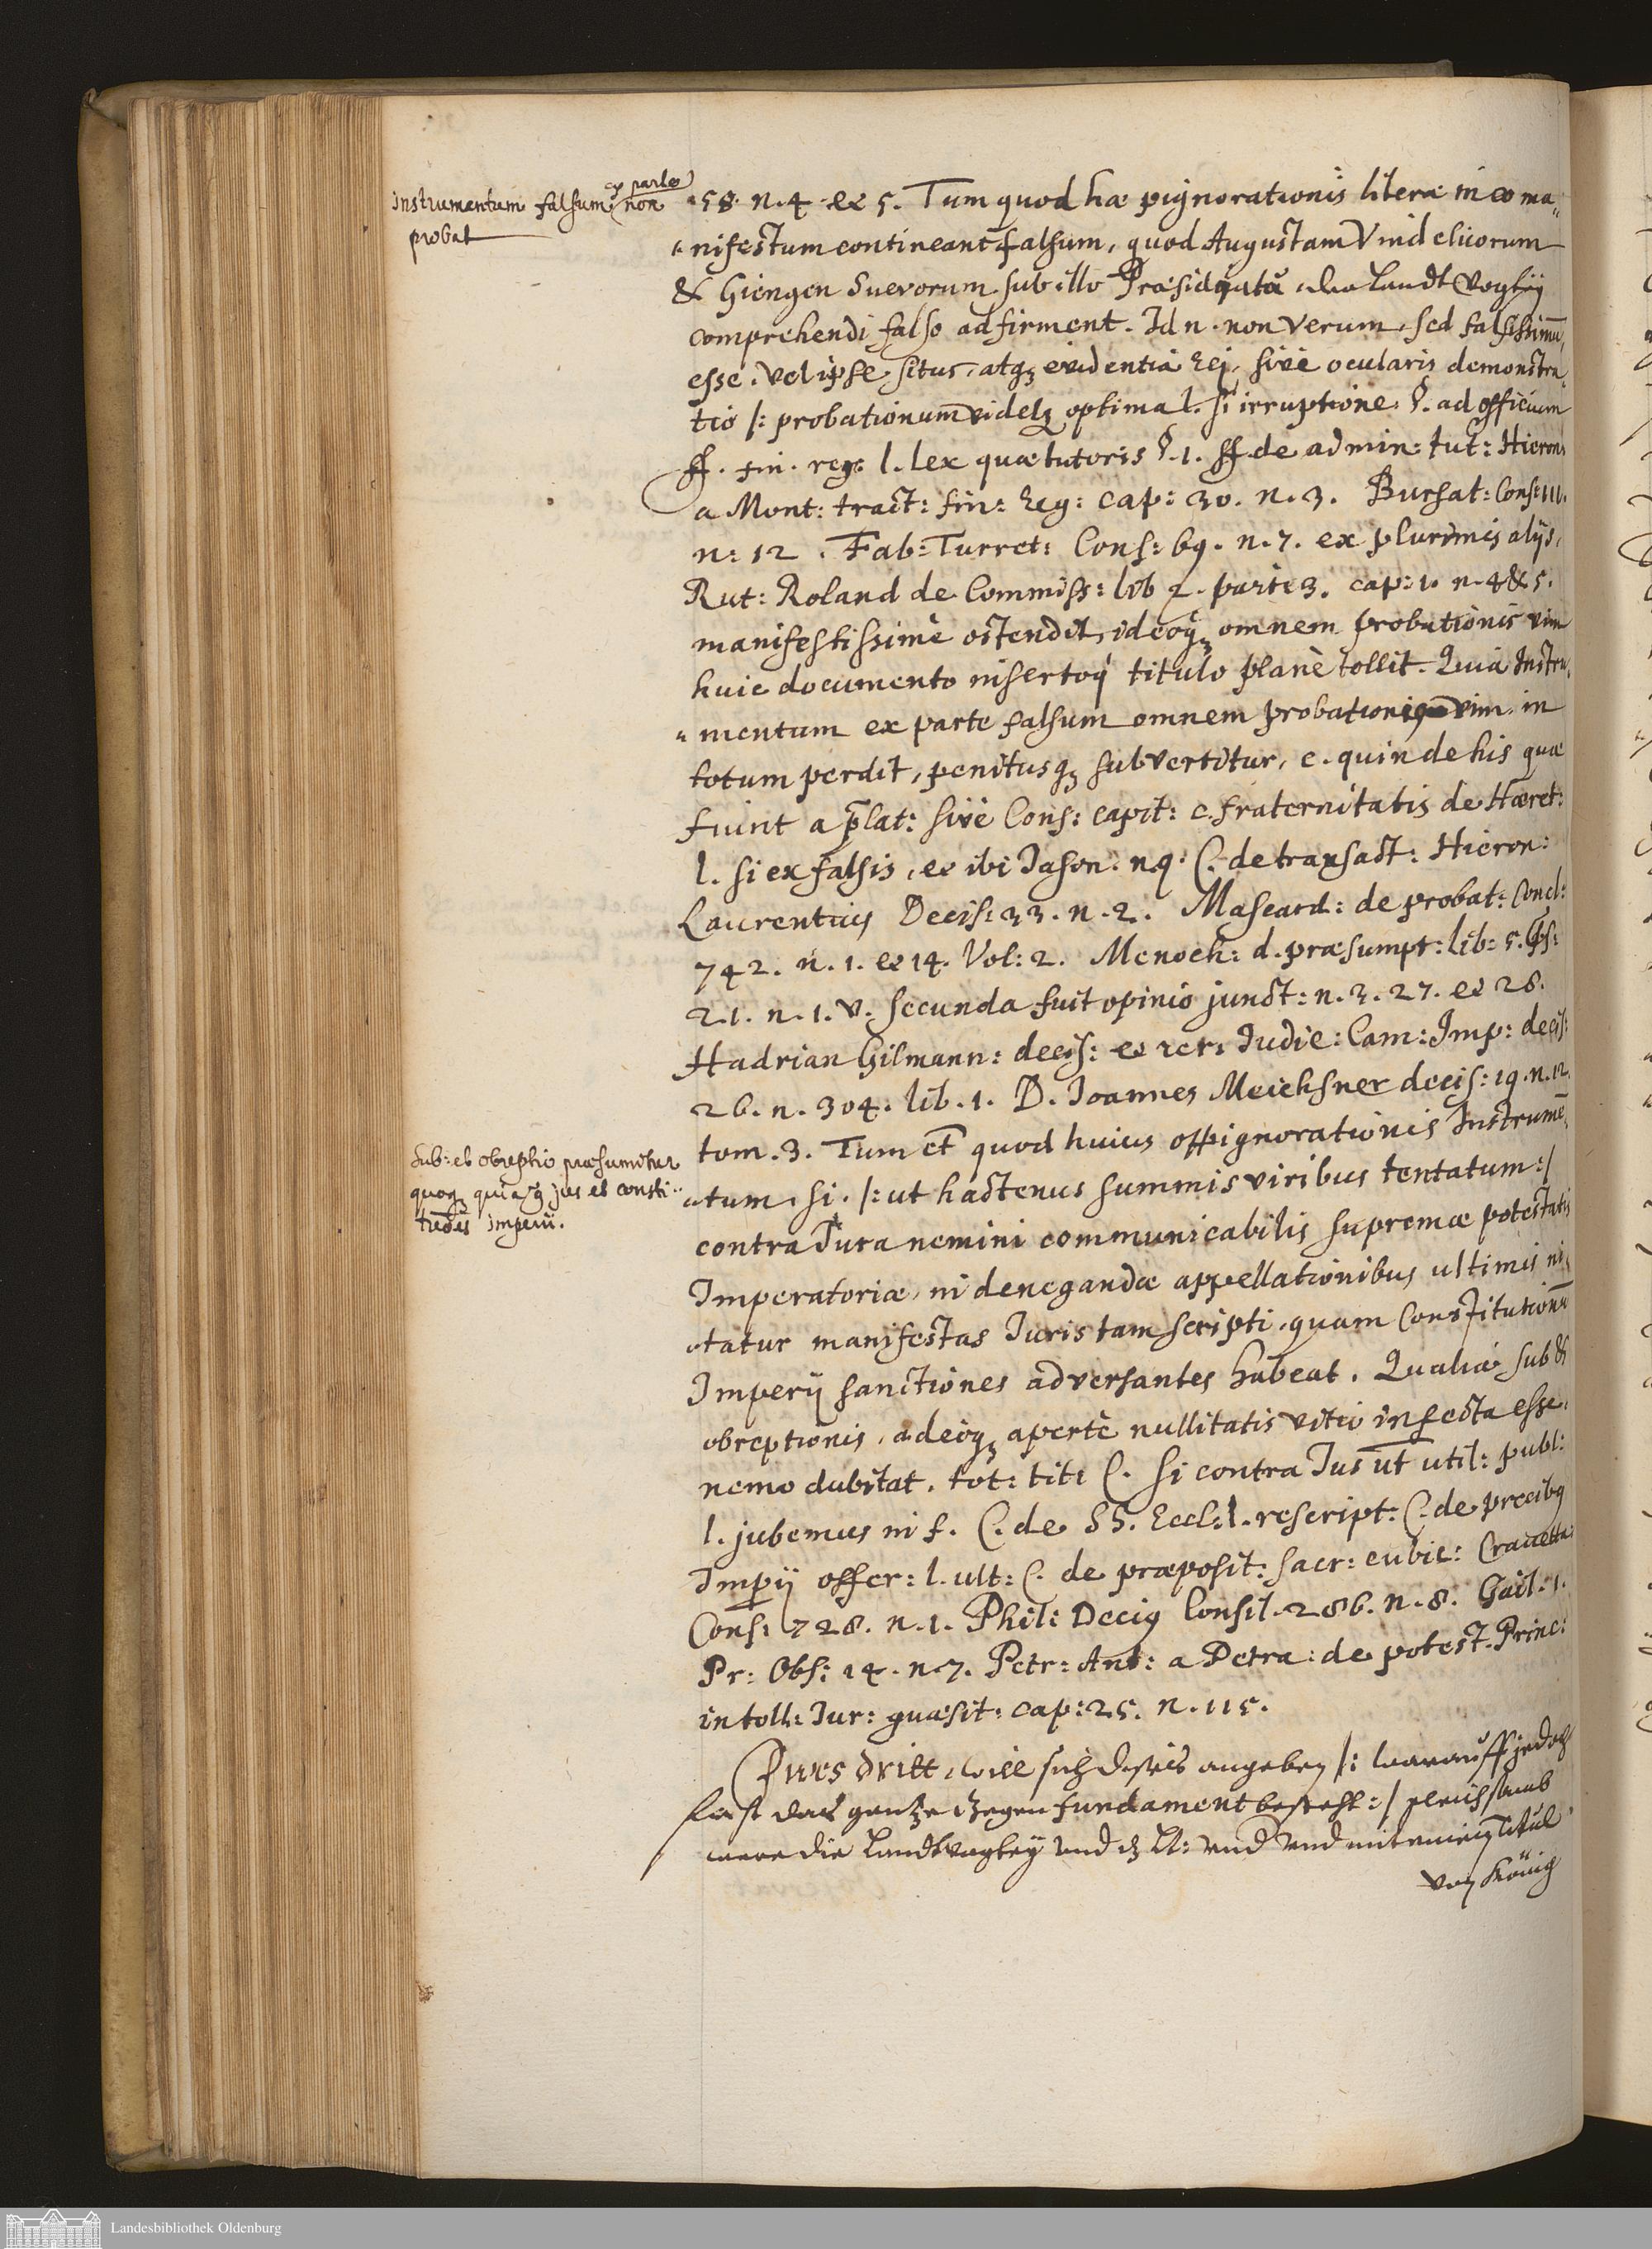 Instrumentum falsum ex parte non
probat
58. n. 4. et 5. Tum quod hæ pignorationis literæ in eo ma„
nifestum contineant falsum, quod Augustam Vindelicorum
& Giengen Suevorum sub illo Præsidiatu oder Landt Vogtey
comprehendi falso adfirment. Id n. non verum, sed falsissimū
esse, vel ipse situs, atq3 evidentia rej, sive ocularis demonstra„
tio /: probationum videlz optima l. si irruptione. §. ad officium
ff. fin. reg: l. Lex quæ tutoris §. 1. ff. de admin: tut: Hieron:
a Mont: tract: fin: Reg: cap: 30. n. 3. Bursat: Cons: 111.
n: 12. Fab: Turret: Cons: 69. n. 7. ex plurimis alijs,
Rut: Roland de Commiss: lib 2. parte 3. cap: 1. n. 4 & 5.
manifestissimè ostendit, ideoq3 omnem probationis vim
huic documento insertoq titulo planè tollit. Quia Instru„
mentum ex parte falsum omnem probationis vim in
totum perdit, penitusq3 subvertitur, c. quin de his quæ
fiunt a p̄lat: sive Cons: capit: c. fraternitatis de Hæret:
l. si ex falsis, et ibi Jason. n. 9. C. de transact: Hieron:
Laurentius Decis: 33. n. 2. Mascard: de probat: Concl:
742. n. 1. et 14. Vol: 2. Menoch: d. præsumpt: lib: 5. Ps:
21. n. 1. v. secunda fuit opinio junct: n. 3. 27. et 28.
Hadrian Gilmann: decis: et rer: Iudic: Cam: Imp: decis:
26. n. 304. lib. 1. D. Joannes Meichsner decis: 19. n. 12.
tom. 3. Tum et quod huius oppignorationis Instrumē„
Sub: et obreptio præsumitur
quoq3 quia jus et consti„
tiōēs imperii.
tum, si. /: ut hactenus summis viribus tentatum :/
contra Jura nemini communicabilis supremæ potestatis
Imperatoriæ, in denegandæ appellationibus ultimis ni„
tatur manifestas Juris tam scripti, quam Constitutionū
Imperij sanctiones adversantes habeat. Qualia sub &
obreptionis, adeoq3 apertè nullitatis vitio infecta esse,
nemo dubitat. tot: tit: C. si contra Jus ut util: publ:
l. jubemus in f. C. de SS. Eccl: l. rescript: C. de precibq
Imp̄ij offer: l. ult: C. de præposit: sacr: cubic: Cravetta:
Cons: 728. n. 1. Phil: Deciq Consil. 286. n. 8. Gail. 1.
Pr: Obs: 14. n. 7. Petr: Ant: a Petra: de potest. Princ:
in toll: Iur: quæsit: cap: 25. n. 115.
Fürs dritt, will sich dises angeben /: warauff jedoch
fast das gantze Gegen fundament besteht :/ gleichsamb
were die Landtvogtey und und mit einem Titul
von König
Landesbibliothek Oldenburg